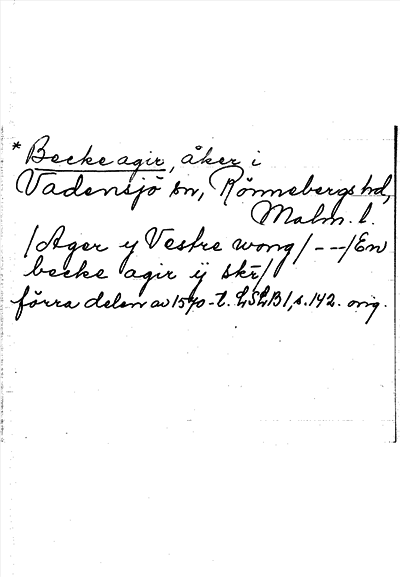 * Becke agir, åker i
Vadensjö sn, Rönnebergs hd,
Malm. l.
/Ager y Vestre wong/ - - - /En
becke agir ÿ skr/
förra delen av 1570-t. LSLB1, s. 142. orig.